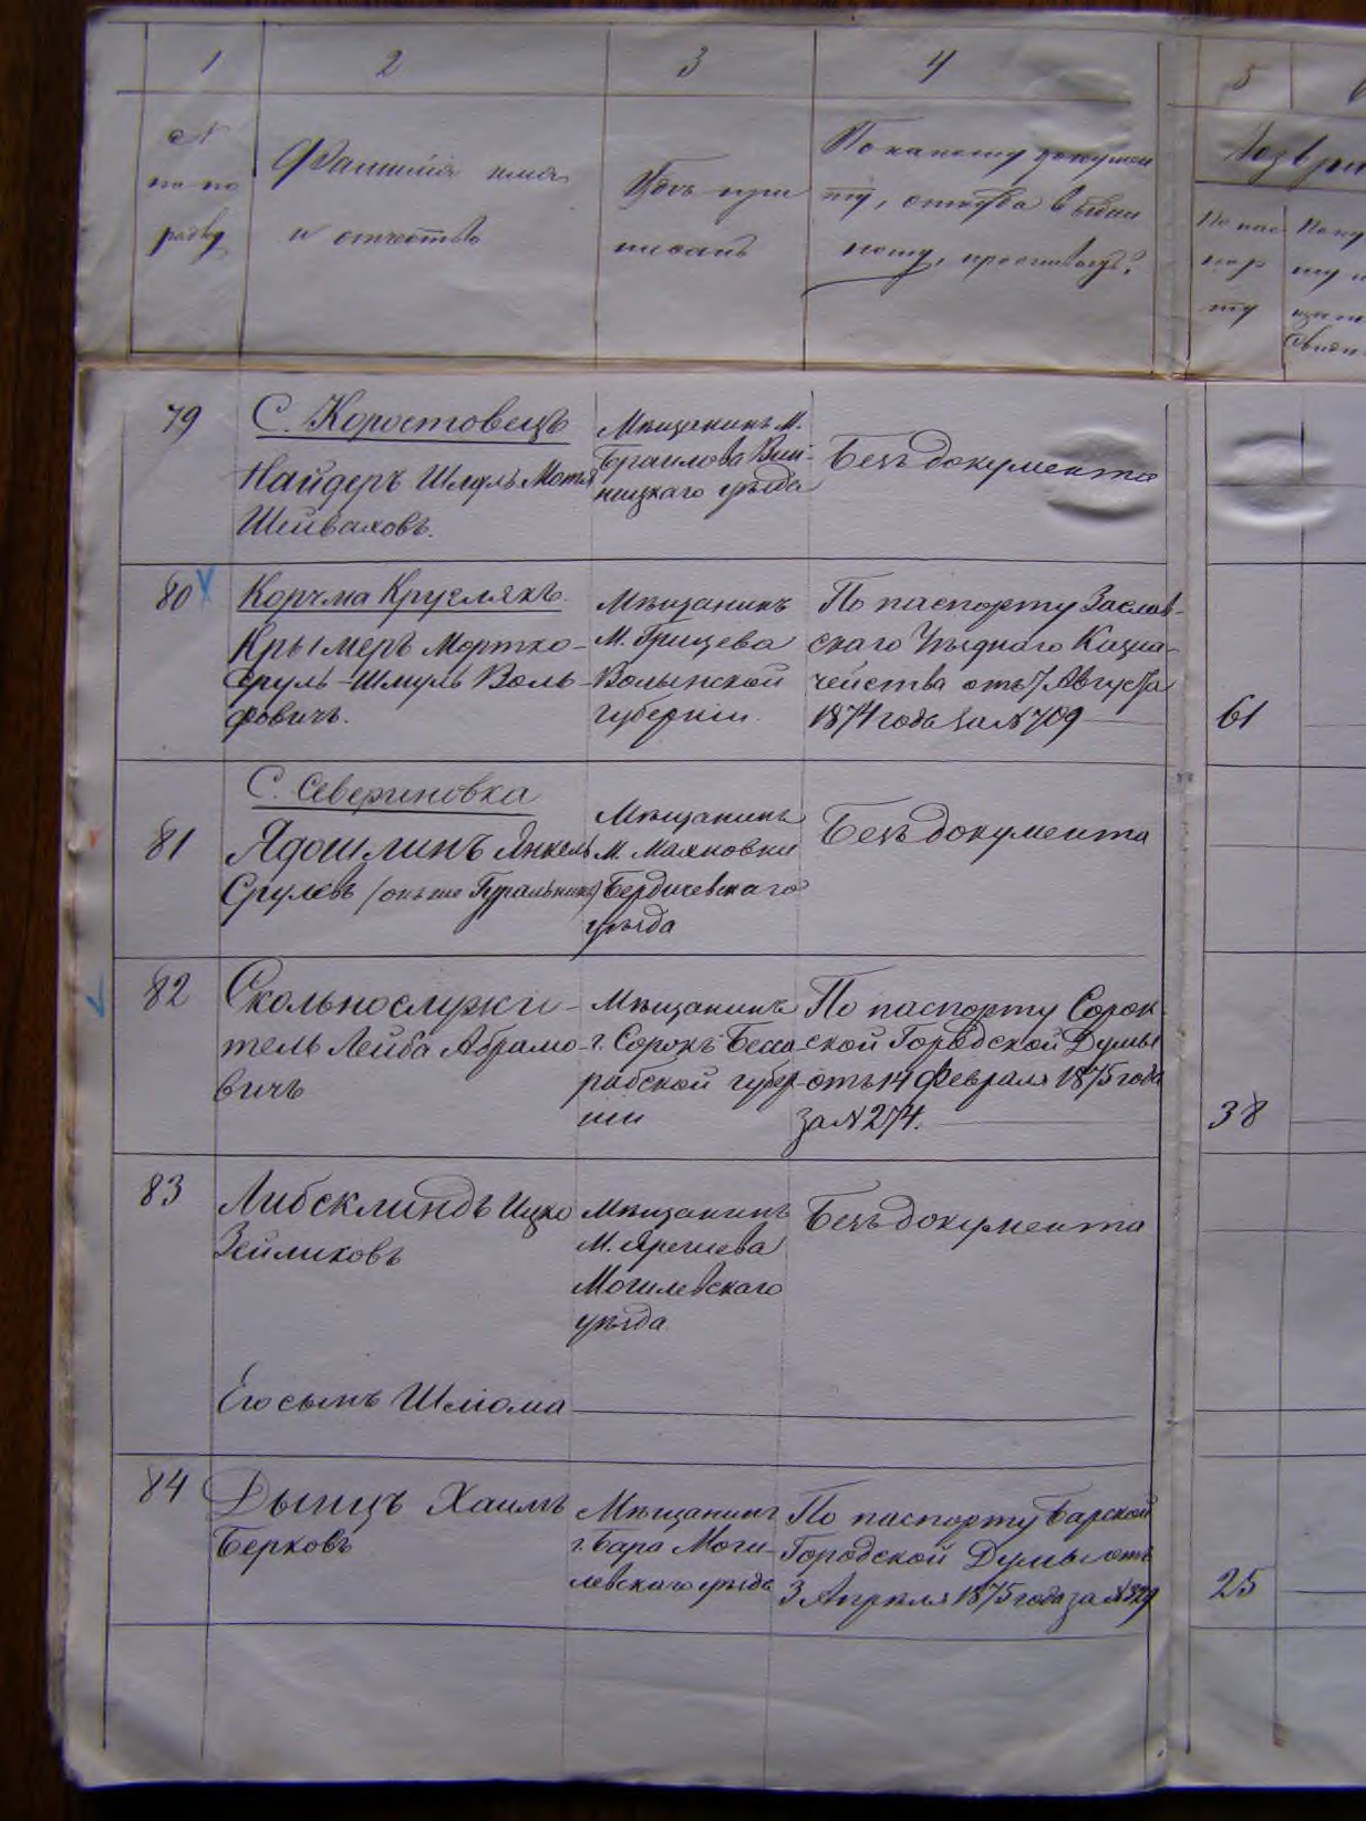 1 2 3 4 5
№
по по
рядку
Фамилія имя
и отчество
Гдѣ при
писанъ
По какому докумен
ту, откуда выдан
ному, проживаетъ?
Возвра
По пас
пор
ту
79
С. Коростовецъ
Найдеръ Шмуль Мотя
Шейваховъ.
Мѣщанинъ м.
Браилова Вин-
ницкаго уѣзда
Безъ документа
80
Корчма Круглякъ
Крымеръ Мортко-
Сруль-Шмуль Воль
фовичъ.
Мѣщанинъ
М. Грицева
Волынской
губерніи.
По паспорту Заслав-
скаго Уѣзднаго Казна-
чейства отъ 7 Августа
1874 года за № 709
61
С. Севериновка
81
Ядошлинъ Янкель
Срулевъ (онъ же Гуральникъ)
Мѣщанинъ
М. Махновки
Бердичевскаго
уѣзда
Безъ документа
82
Скольнослужи-
тель Лейба Абрамо-
вичъ
Мѣщанинъ
г. Сорокъ Бесса
рабской губер
ніи
По паспорту Сорок-
ской Городской Думы
отъ 14 Февраля 1875 года
за № 274.
38
83
Либсклиндъ Ицко
Зейликовъ
Мѣщанинъ
М. Яришева
Могилевскаго
уѣзда
Безъ документа
Его сынъ Шлiома
84
Дынцъ Хаимъ
Берковъ
Мѣщанинъ
г. Бара Моги-
левскаго уѣзда
По паспорту Барской
Городской Думы отъ
3 Апрѣля 1875 года за № 329
25